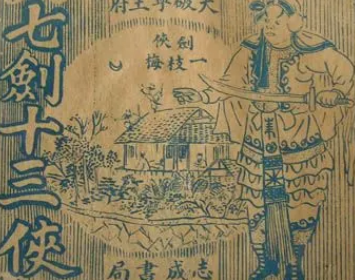 大破寧王府
劍俠
一枝梅
七劍十三俠
志成書局